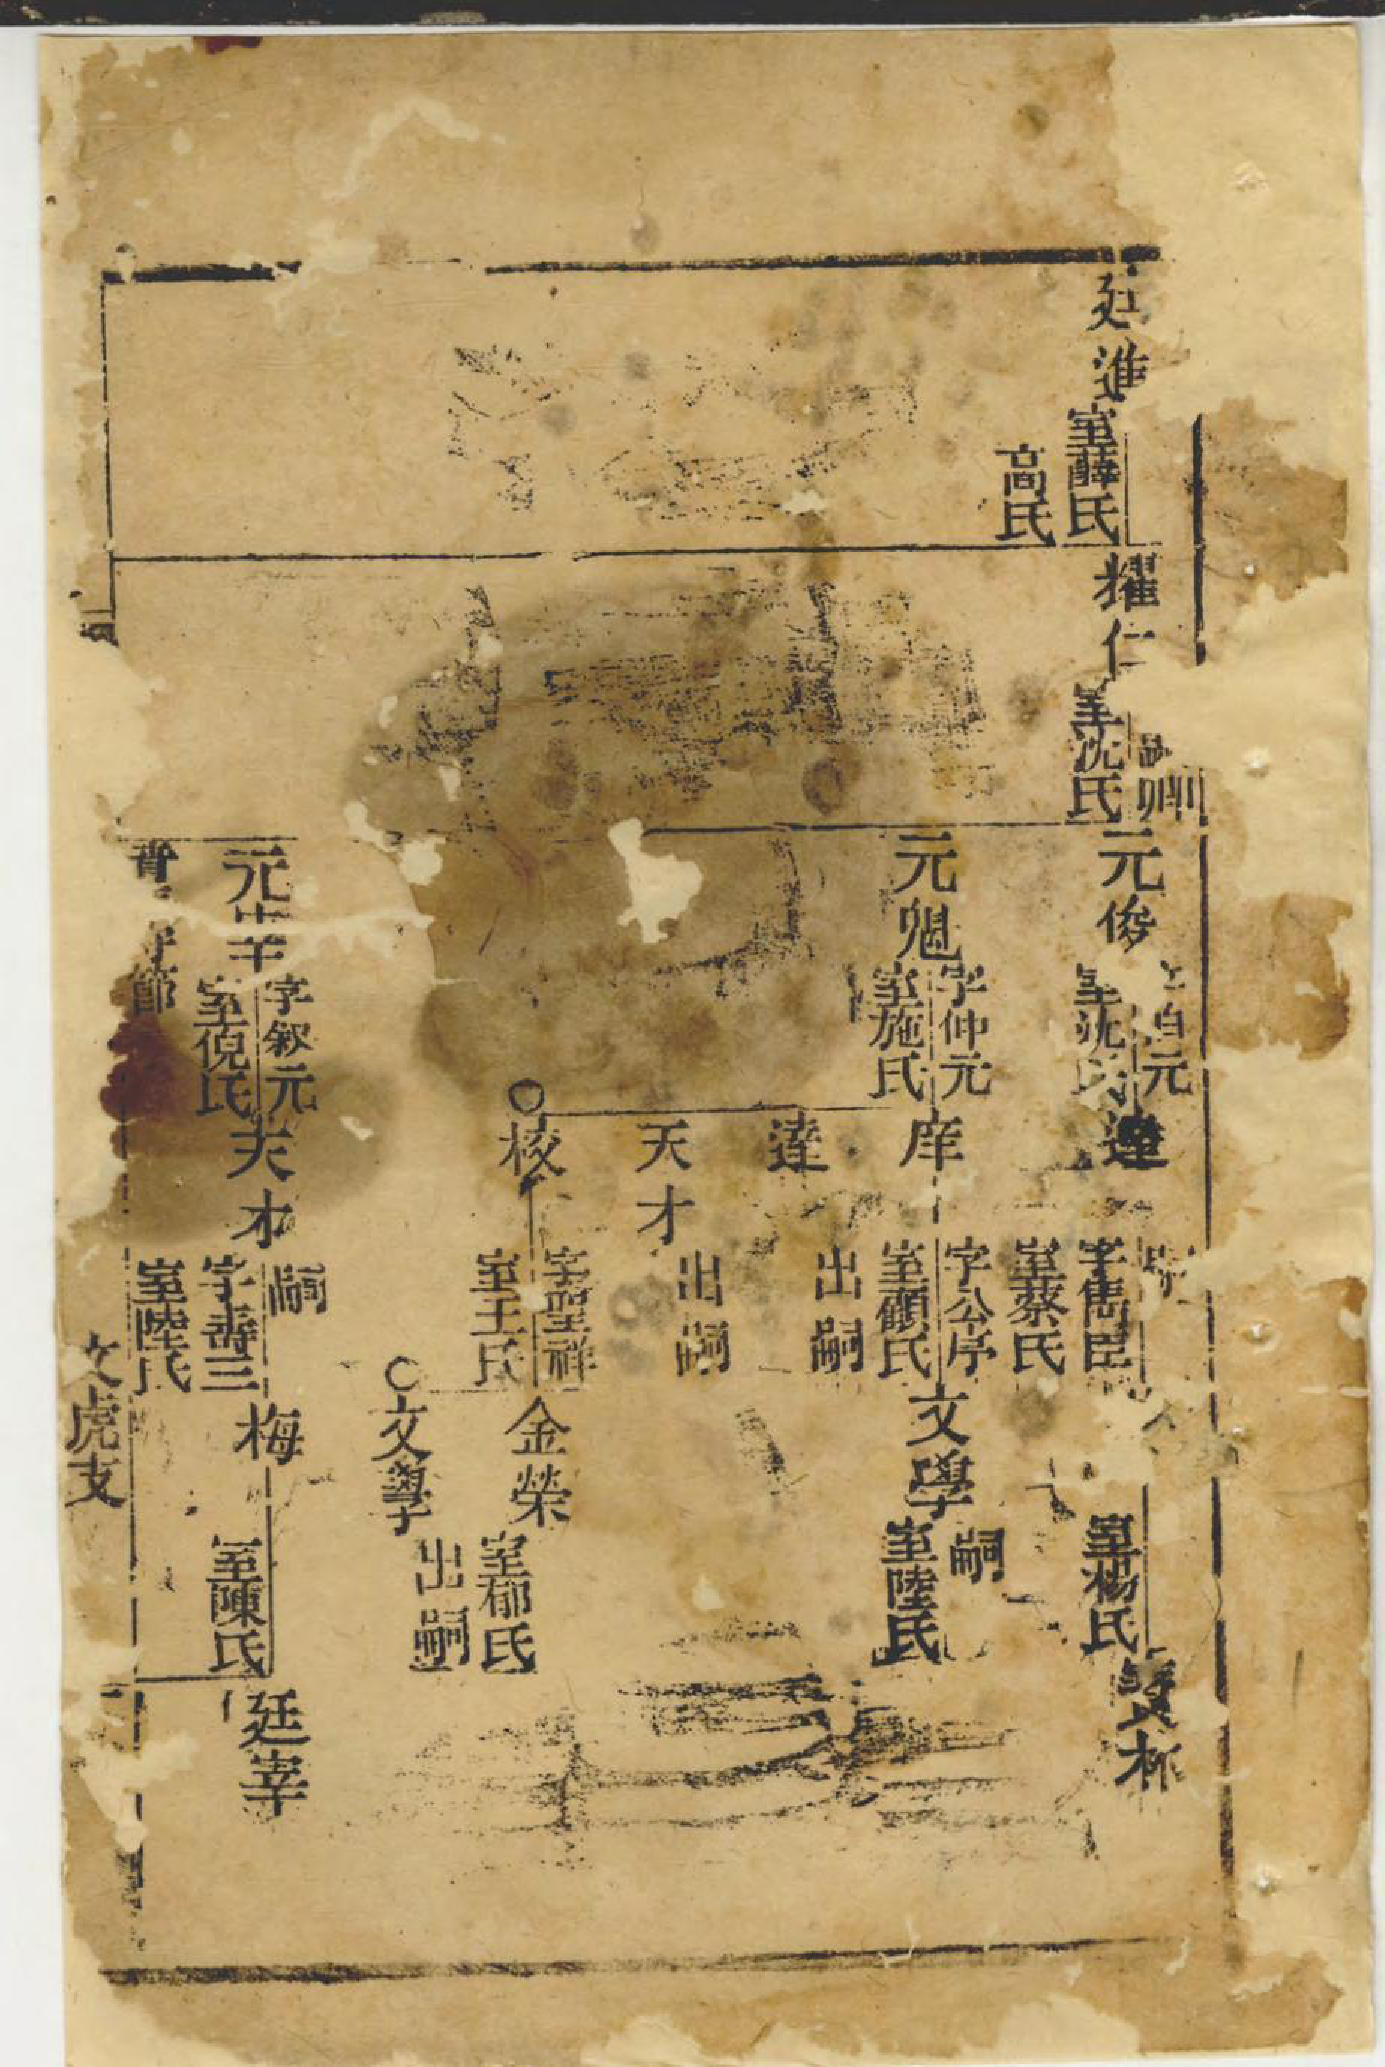 廷進
室薛氏
高氏
耀仁
卿
室沈氏
元俊
自元
室沈氏
元魁
字仲元
室施氏
元
字叙元
室倪氏
節
達
字雋臣
室蔡氏
庠
字公序
室顧氏
達
出嗣
天才
出嗣
校
字聖祥
室王氏
天才
嗣
字壽三
室陸氏
室楊氏
文學
嗣
室陸氏
金榮
室郁氏
文學
出嗣
梅
室陳氏
文虎支
廷宰